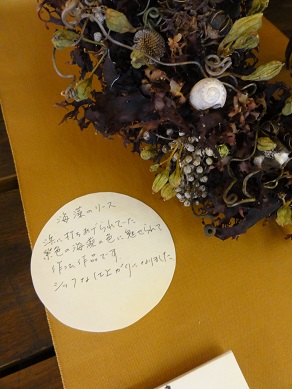 海藻のリース
浜に打ちあげられてた
紫色の海藻の色に魅せられて
作った作品です
シックな仕上がりになりました